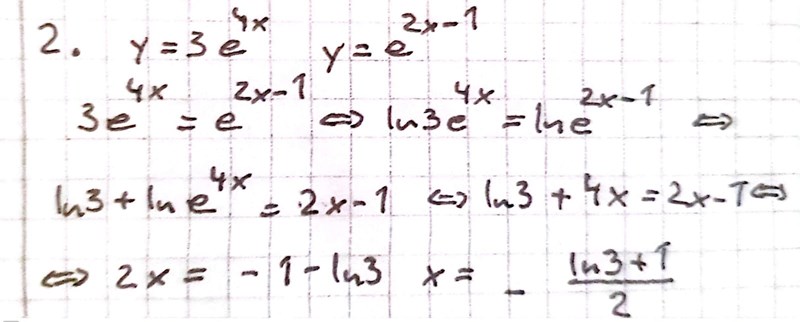 2. y = 3e^{4x} y = e^{2x-1}
3e^{4x} = e^{2x-1} ⇔ ln3e^{4x} = lne^{2x-1} ⇔
ln3 + lne^{4x} = 2x-1 ⇔ ln3 + 4x = 2x-1 ⇔
⇔ 2x = -1-ln3 x = - \frac{ln3+1}{2}